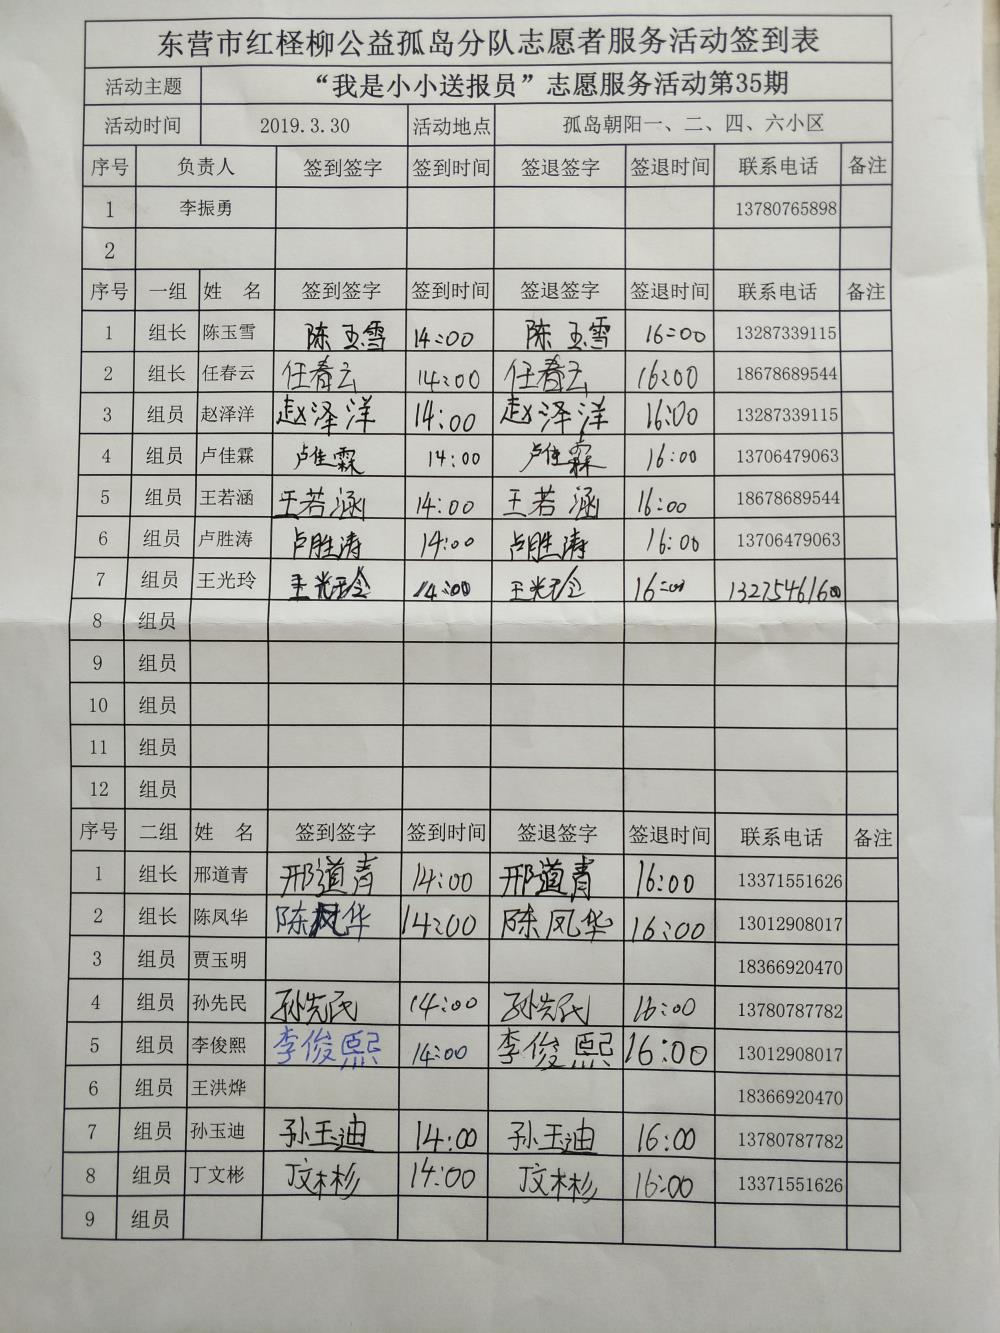 东营市红柽柳公益孤岛分队志愿者服务活动签到表
活动主题 “我是小小送报员”志愿服务活动第35期
活动时间 2019.3.30 活动地点 孤岛朝阳一、二、四、六小区
序号 负责人 签到签字 签到时间 签退签字 签退时间 联系电话 备注
1 李振勇 13780765898
2
序号 一组 姓 名 签到签字 签到时间 签退签字 签退时间 联系电话 备注
1 组长 陈玉雪 陈玉雪 14:00 陈玉雪 16:00 13287339115
2 组长 任春云 任春云 14:00 任春云 16:00 18678689544
3 组员 赵泽洋 赵泽洋 14:00 赵泽洋 16:00 13287339115
4 组员 卢佳霖 卢佳霖 14:00 卢佳霖 16:00 13706479063
5 组员 王若涵 王若涵 14:00 王若涵 16:00 18678689544
6 组员 卢胜涛 卢胜涛 14:00 卢胜涛 16:00 13706479063
7 组员 王光玲 王光玲 14:00 王光玲 16:00 13275461600
8 组员
9 组员
10 组员
11 组员
12 组员
序号 二组 姓 名 签到签字 签到时间 签退签字 签退时间 联系电话 备注
1 组长 邢道青 邢道青 14:00 邢道青 16:00 13371551626
2 组长 陈凤华 陈凤华 14:00 陈凤华 16:00 13012908017
3 组员 贾玉明 18366920470
4 组员 孙先民 孙先民 14:00 孙先民 16:00 13780787782
5 组员 李俊熙 李俊熙 14:00 李俊熙 16:00 13012908017
6 组员 王洪烨 18366920470
7 组员 孙玉迪 孙玉迪 14:00 孙玉迪 16:00 13780787782
8 组员 丁文彬 丁文彬 14:00 丁文彬 16:00 13371551626
9 组员